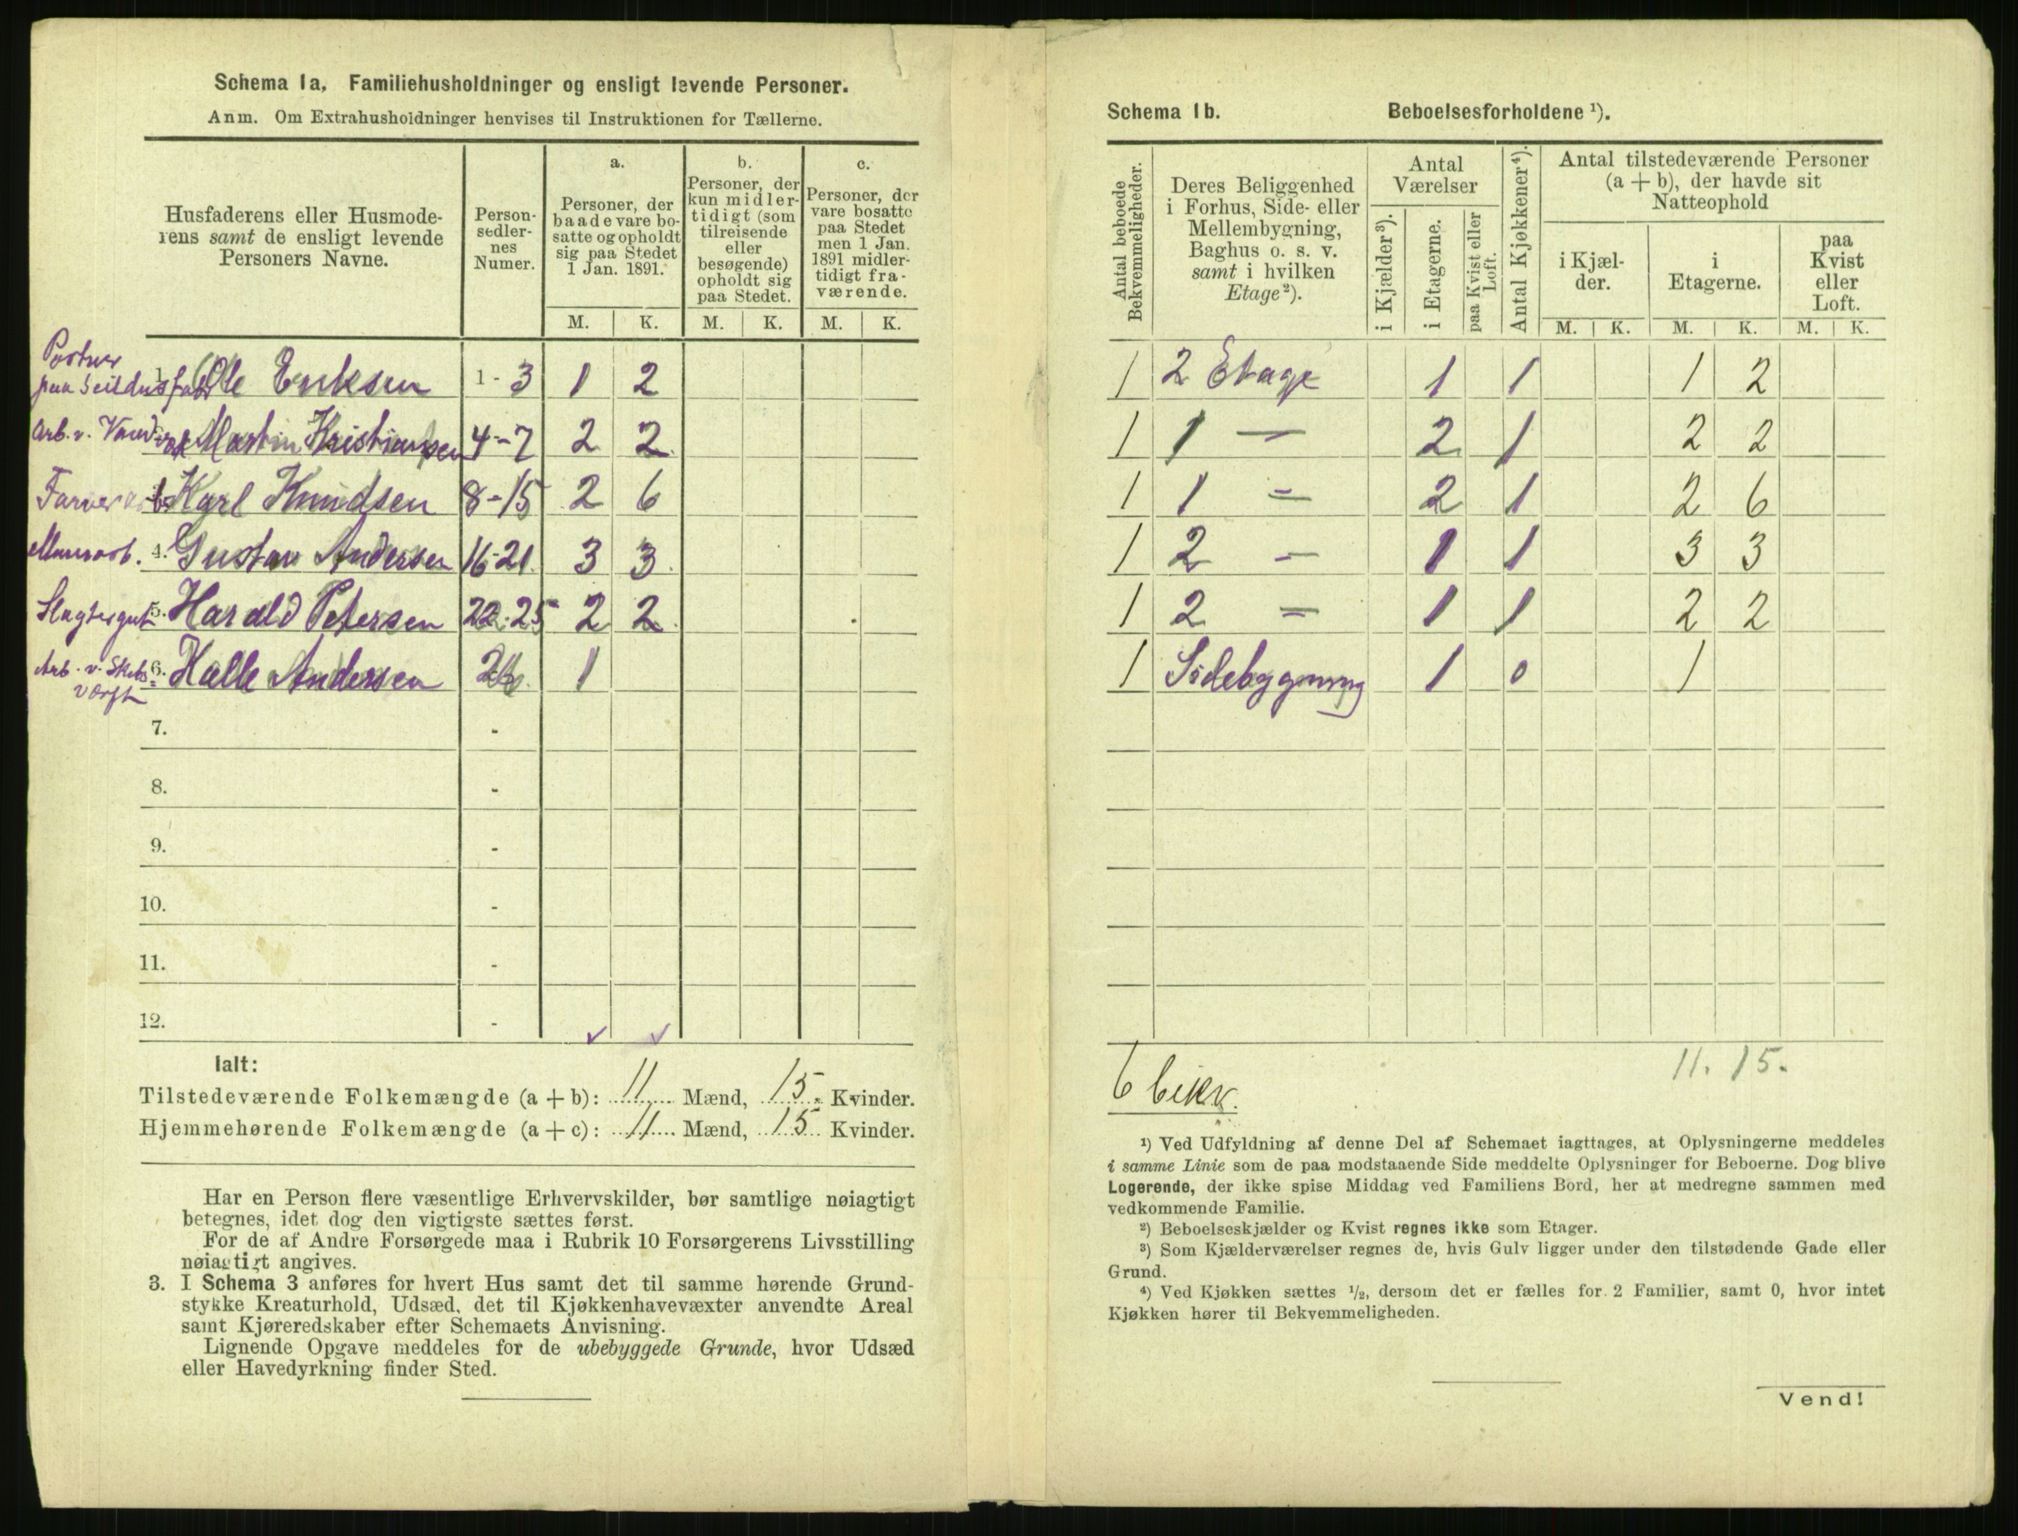 Schema 1a. Familiehusholdninger og ensligt levende Personer.
Anm. Om Extrahusholdninger henvises til Instruktionen for Tællerne.
Husfaderens eller Husmoderens samt de ensligt levende Personers Navne. | Personsedlernes Numer. | a. Personer, der baade vare bosatte og opholdt sig paa Stedet 1 Jan. 1891. | b. Personer, der kun midlertidigt (som tilreisende eller besøgende) opholdt sig paa Stedet. | c. Personer, der vare bosatte paa Stedet men 1 Jan. 1891 midlertidigt fraværende.
M. K. M. K. M. K.
paa Seildugsfabr 1. Ole Eriksen 1 - 3 1 2
Arb. v. Martin Kristiansen 4-7 2 2
Karl Knudsen 8-15 2 6
Murarb. 4. Gustav Andersen 16-21. 3 3
Slagtergut 5. Harald Petersen 22-25 2 2
Arb. v. Skibs= 6. Halle Andersen 26. 1
værft
7. -
8. -
9. -
10. -
11. -
12. -
Ialt:
Tilstedeværende Folkemængde (a + b): 11 Mænd, 15 Kvinder.
Hjemmehørende Folkemængde (a + c): 11 Mænd, 15 Kvinder.
Har en Person flere væsentlige Erhvervskilder, bør samtlige nøiagtigt
betegnes, idet dog den vigtigste sættes først.
For de af Andre Forsørgede maa i Rubrik 10 Forsørgerens Livsstilling
nøiagtigt angives.
3. I Schema 3 anføres for hvert Hus samt det til samme hørende Grund-
stykke Kreaturhold, Udsæd, det til Kjøkkenhavevæxter anvendte Areal
samt Kjøreredskaber efter Schemaets Anvisning.
Lignende Opgave meddeles for de ubebyggede Grunde, hvor Udsæd
eller Havedyrkning finder Sted.
Schema 1b. Beboelsesforholdene ¹).
Antal beboede Bekvemmeligheder. | Deres Beliggenhed i Forhus, Side- eller Mellembygning, Baghus o. s. v. samt i hvilken Etage²). | Antal Værelser | i Kjælder³). | i Etagerne. | paa Kvist eller Loft. | Antal Kjøkkener⁴). | Antal tilstedeværende Personer (a + b), der havde sit Natteophold | i Kjælder. | i Etagerne. | paa Kvist eller Loft.
M. K. M. K. M. K.
1 2 Etage 1 1 1 2
1 1 — 2 1 2 2
1 1 = 2 1 2 6
1 2 - 1 1 3 3
1 2 = 1 1 2 2
1 Sidebygning 1 0 1
11. 15.
6 bekv.
¹) Ved Udfyldning af denne Del af Schemaet iagttages, at Oplysningerne meddeles
i samme Linie som de paa modstaaende Side meddelte Oplysninger for Beboerne. Dog blive
Logerende, der ikke spise Middag ved Familiens Bord, her at medregne sammen med
vedkommende Familie.
²) Beboelseskjælder og Kvist regnes ikke som Etager.
³) Som Kjælderværelser regnes de, hvis Gulv ligger under den tilstødende Gade eller
Grund.
⁴) Ved Kjøkken sættes ½, dersom det er fælles for 2 Familier, samt 0, hvor intet
Kjøkken hører til Bekvemmeligheden.
Vend!